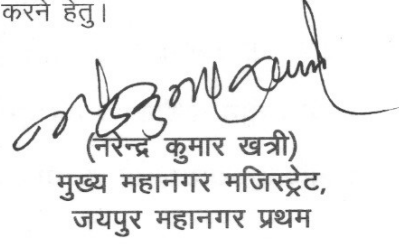 करने हेतु।
(नरेन्द्र कुमार खत्री)
मुख्य महानगर मजिस्ट्रेट,
जयपुर महानगर प्रथम